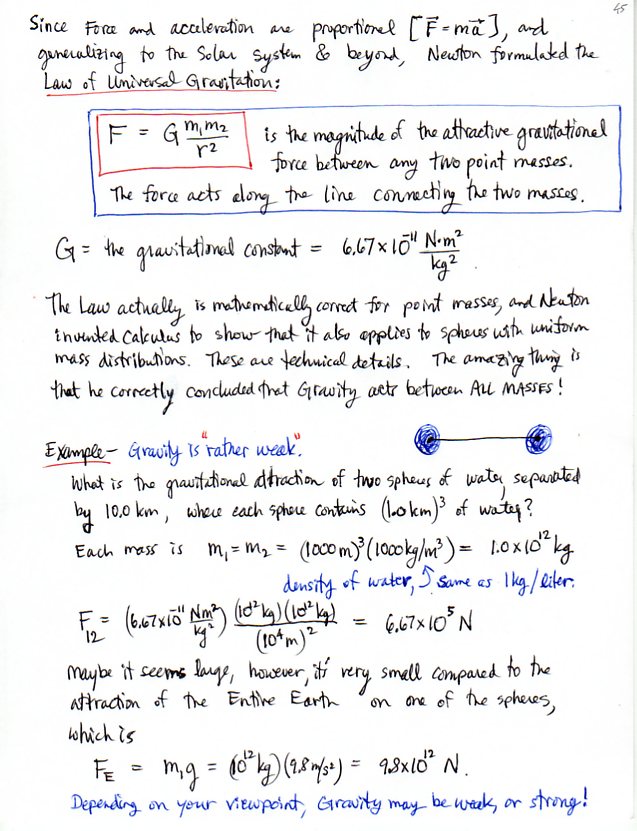 45
Since Force and acceleration are proportional [F⃗ = ma⃗], and
generalizing to the Solar System & beyond, Newton formulated the
Law of Universal Gravitation:
F = G m₁m₂/r² is the magnitude of the attractive gravitational
force between any two point masses.
The force acts along the line connecting the two masses.
G = the gravitational constant = 6.67×10⁻¹¹ N·m²/kg²
The Law actually is mathematically correct for point masses, and Newton
invented Calculus to show that it also applies to spheres with uniform
mass distributions. These are technical details. The amazing thing is
that he correctly concluded that Gravity acts between ALL MASSES!
Example – Gravity is "rather weak".
What is the gravitational attraction of two spheres of water, separated
by 10.0 km, where each sphere contains (1.0 km)³ of water?
Each mass is m₁ = m₂ = (1000 m)³(1000 kg/m³) = 1.0×10¹² kg
density of water, ↑ same as 1 kg/liter.
F₁₂ = (6.67×10⁻¹¹ Nm²/kg²) (10¹² kg)(10¹² kg)/(10⁴ m)² = 6.67×10⁵ N
Maybe it seems large, however, it's very small compared to the
attraction of the Entire Earth on one of the spheres,
which is
F_E = m₁g = (10¹² kg)(9.8 m/s²) = 9.8×10¹² N.
Depending on your viewpoint, Gravity may be weak, or strong!